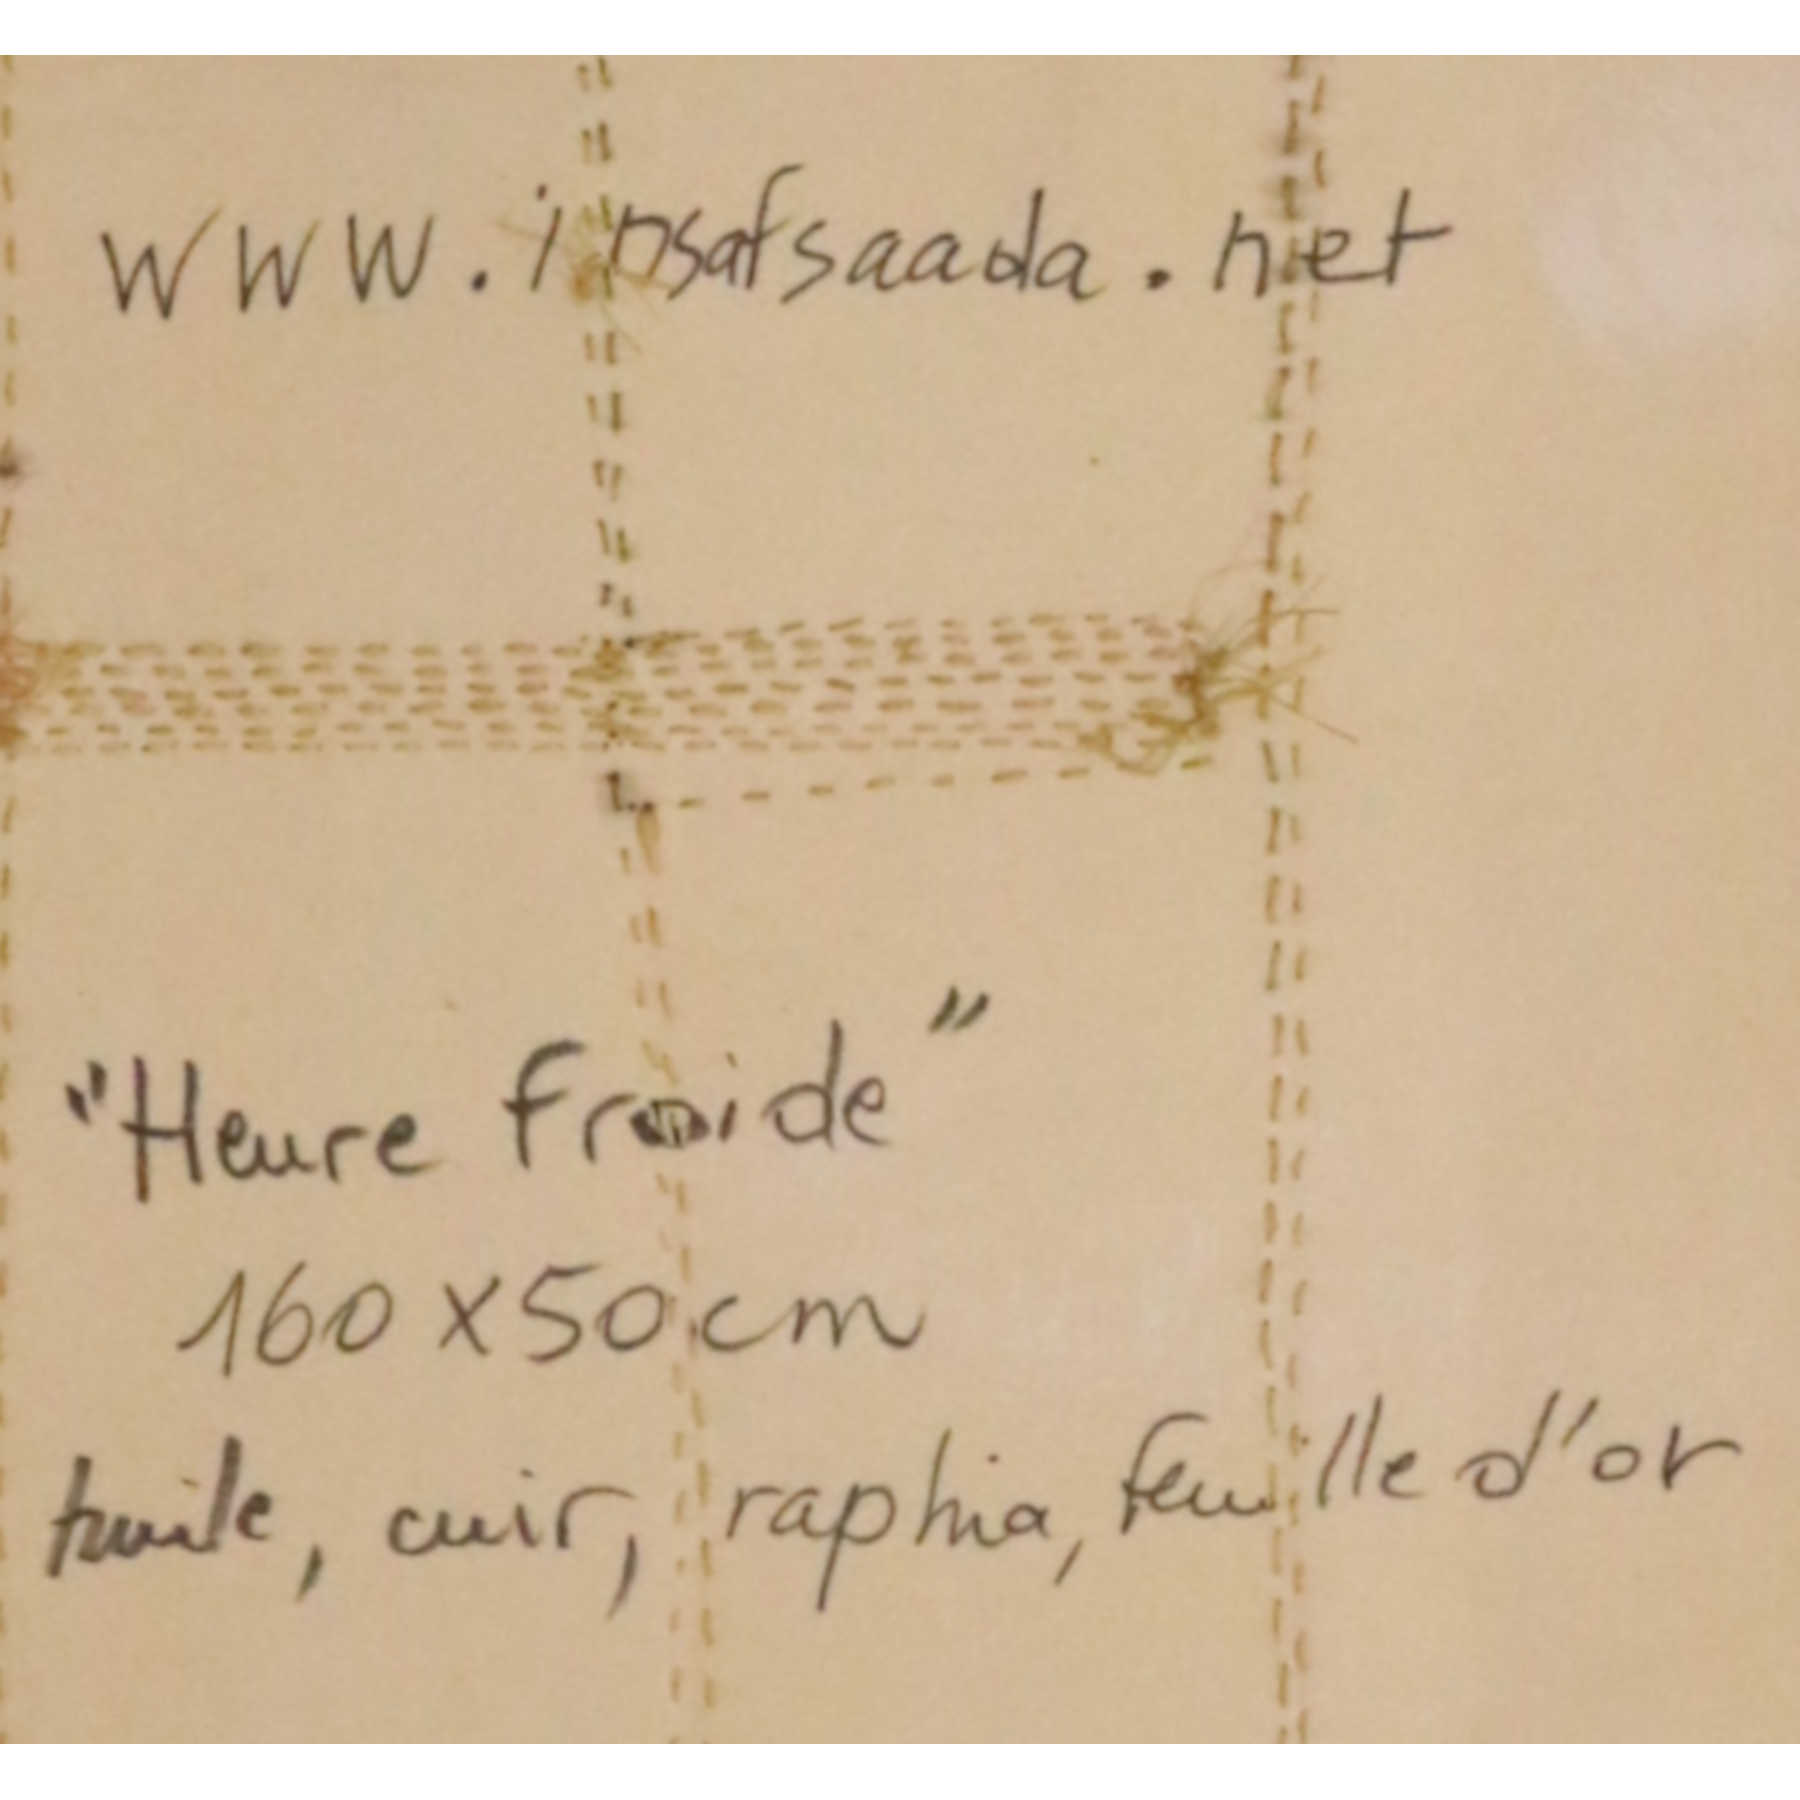 www.insafsaada.net
"Heure froide"
160 x 50 cm
huile, cuir, raphia, feuille d'or